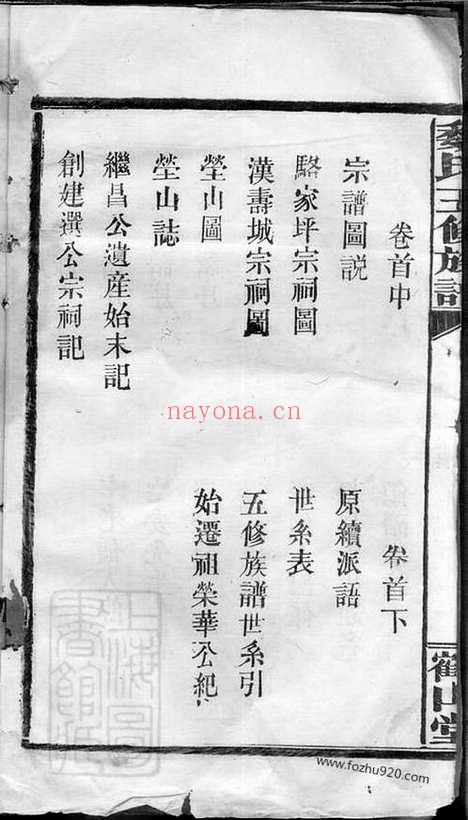 氏五修族譜
卷首中
宗譜圖説
駱家坪宗祠圖
漢壽城宗祠圖
塋山圖
塋山誌
繼昌公遺產始末記
創建選公宗祠記
卷首下
原續派語
世系表
五修族譜世系引
始遷祖榮華公紀
山堂
上海圖書館藏
nayona.cn
www.fozhu920.com